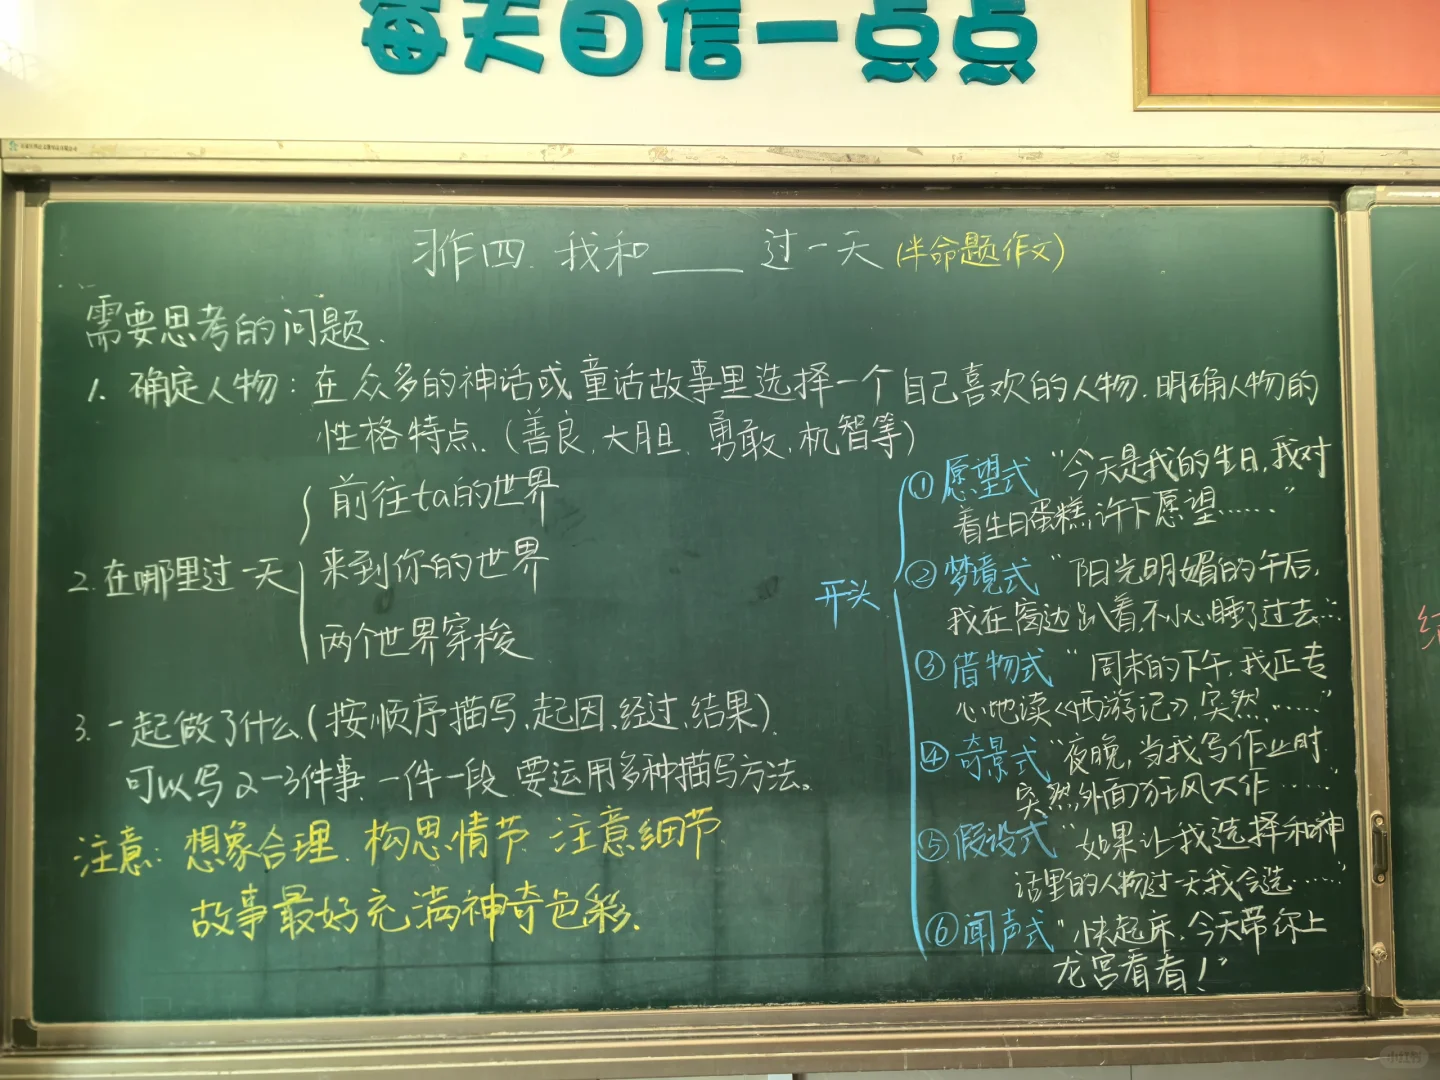 每天自信一点点
习作四. 我和____过一天 (半命题作文)
需要思考的问题.
1. 确定人物: 在众多的神话或童话故事里选择一个自己喜欢的人物. 明确人物的
性格特点. (善良, 大胆, 勇敢, 机智等)
2. 在哪里过一天
前往ta的世界
来到你的世界
两个世界穿梭
3. 一起做了什么 (按顺序描写, 起因, 经过, 结果).
可以写2-3件事, 一件一段. 要运用多种描写方法。
注意: 想象合理. 构思情节. 注意细节.
故事最好充满神奇色彩.
开头
① 愿望式 “今天是我的生日, 我对
着生日蛋糕许下愿望……”
② 梦境式 “阳光明媚的午后,
我在窗边趴着, 不小心睡了过去…”
③ 借物式 “周末的下午, 我正专
心地读《西游记》, 突然……”
④ 奇景式 “夜晚, 当我写作业时,
突然, 外面狂风大作……”
⑤ 假设式 “如果让我选择和神
话里的人物过一天我会选……”
⑥ 闻声式 “快起床, 今天带你上
龙宫看看!”
小红书